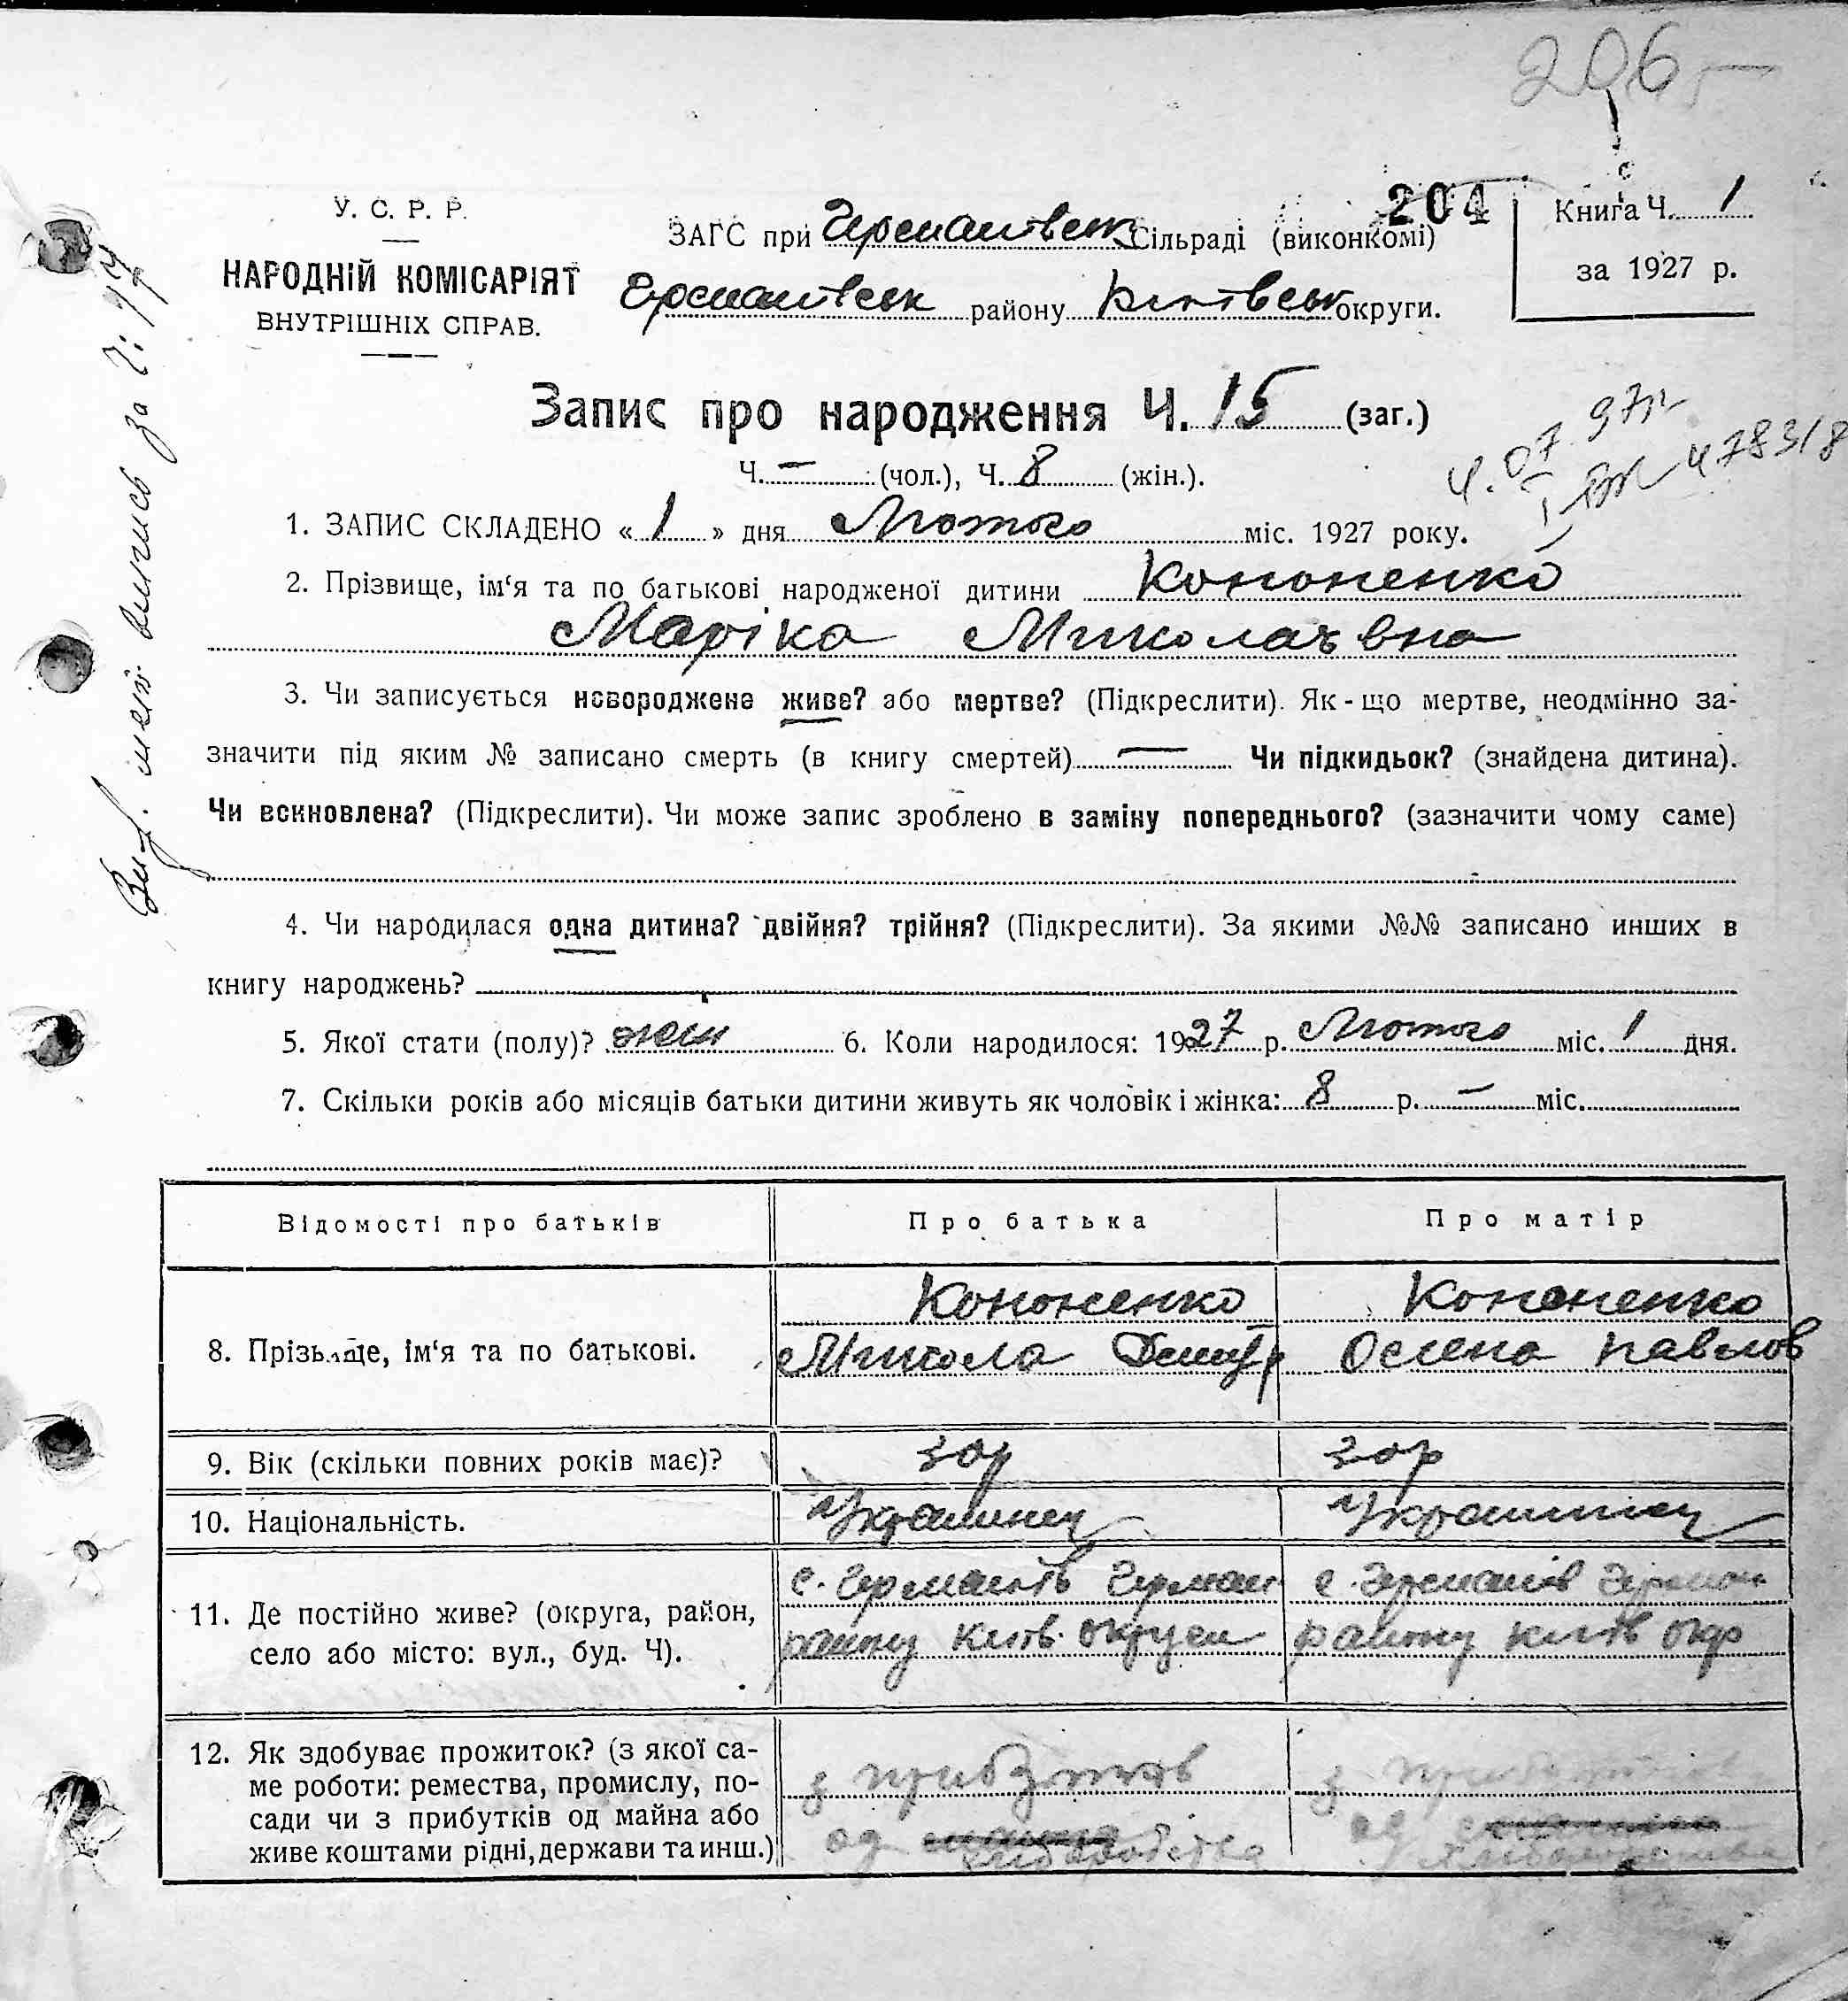 206
204
У. С. Р. Р.
НАРОДНІЙ КОМІСАРІЯТ
ВНУТРІШНІХ СПРАВ.
ЗАГС при Германівськ Сільраді (виконкомі)
Германівськ району Київськ округи.
Книга Ч. 1
за 1927 р.
Запис про народження Ч. 15 (заг.)
Ч. — (чол.), Ч. 8 (жін.).
1. ЗАПИС СКЛАДЕНО « 1 » дня Лютого міс. 1927 року.
2. Прізвище, ім‘я та по батькові народженої дитини Кононенко
Маріка Миколаівна
3. Чи записується новороджене живе? або мертве? (Підкреслити). Як-що мертве, неодмінно за-
значити під яким № записано смерть (в книгу смертей) — Чи підкидьок? (знайдена дитина).
Чи всиновлена? (Підкреслити). Чи може запис зроблено в заміну попереднього? (зазначити чому саме)
4. Чи народилася одна дитина? двійня? трійня? (Підкреслити). За якими №№ записано инших в
книгу народжень?
5. Якої стати (полу)? жін 6. Коли народилося: 1927 р. Лютого міс. 1 дня.
7. Скільки років або місяців батьки дитини живуть як чоловік і жінка: 8 р. — міс.
Відомості про батьків Про батька Про матір
8. Прізвище, ім‘я та по батькові. Кононенко Микола Дмитр Кононенко Олена Павлов
9. Вік (скільки повних років має)? 30р 30р
10. Національність. Украинец Украинец
11. Де постійно живе? (округа, район, с. Германів Герман с. Германів Герман
село або місто: вул., буд. Ч). району Київ. округи району Київ окр
12. Як здобуває прожиток? (з якої са-
ме роботи: ремества, промислу, по- з прибутків з прибутків
сади чи з прибутків од майна або од од
живе коштами рідні, держави та инш.) хліборобства